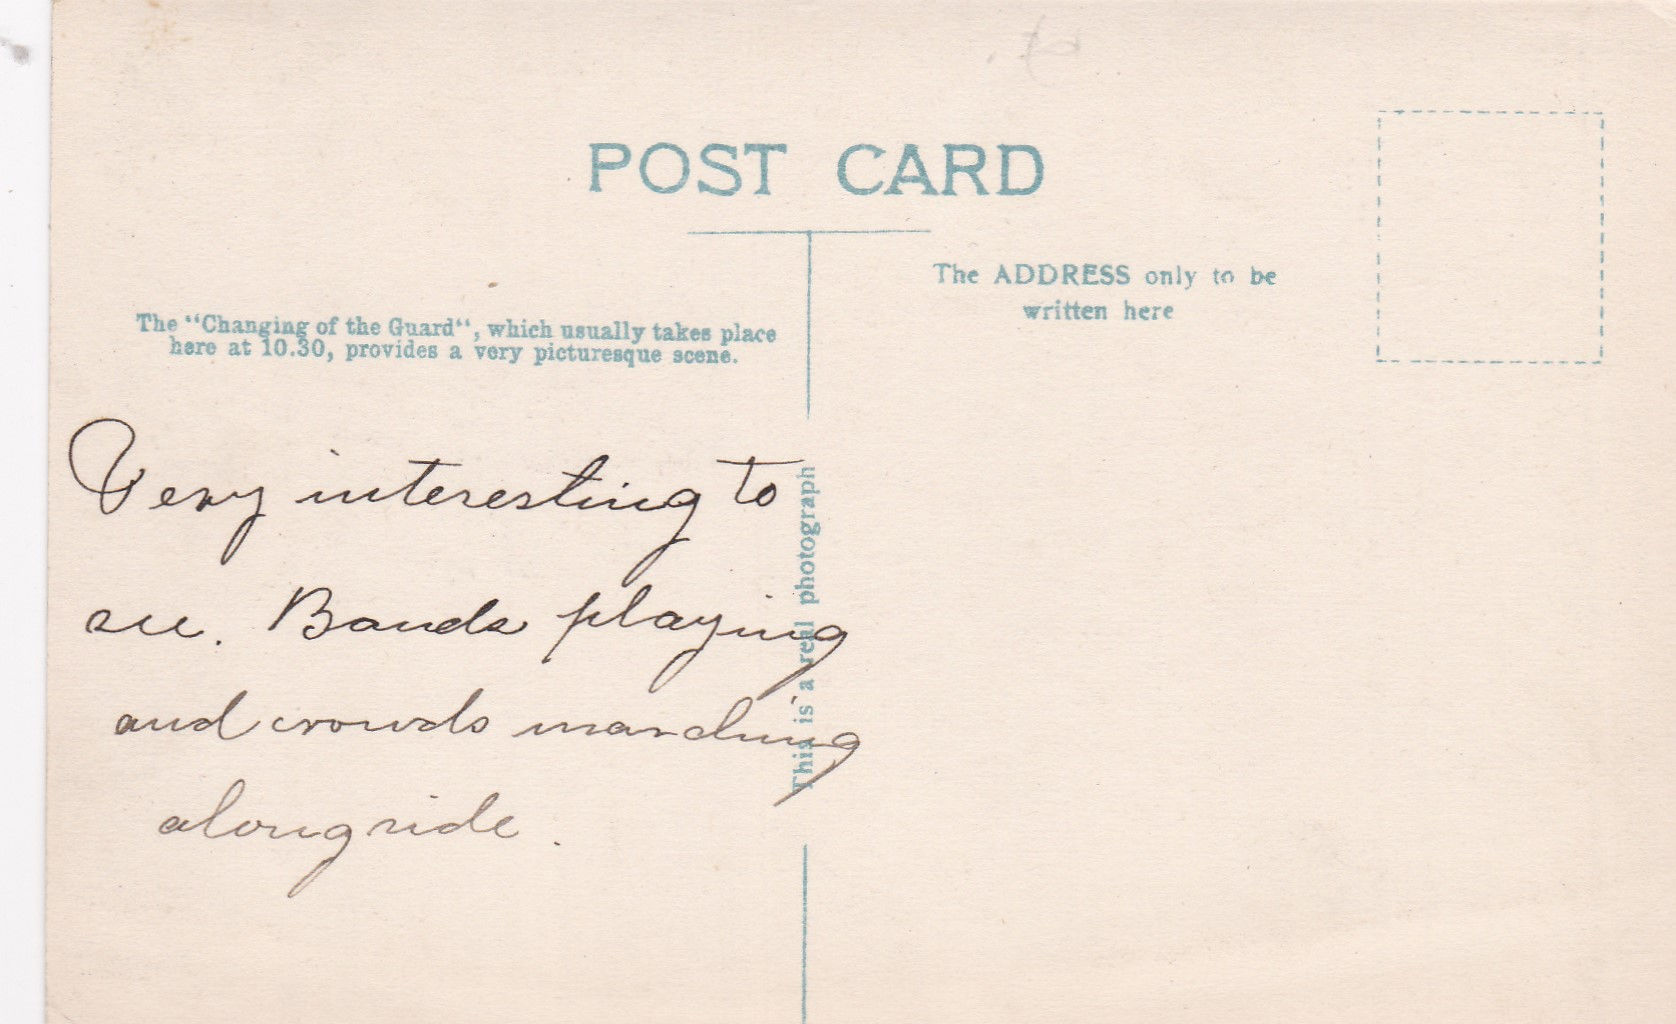 POST CARD
The "Changing of the Guard", which usually takes place
here at 10.30, provides a very picturesque scene.
Very interesting to
see. Bands playing
and crowds marching
alongside.
This is a real photograph
The ADDRESS only to be
written here